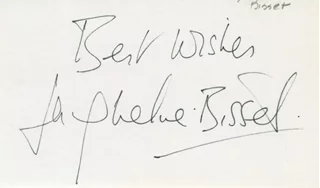 Bisset
Best Wishes
Jacqueline Bisset.